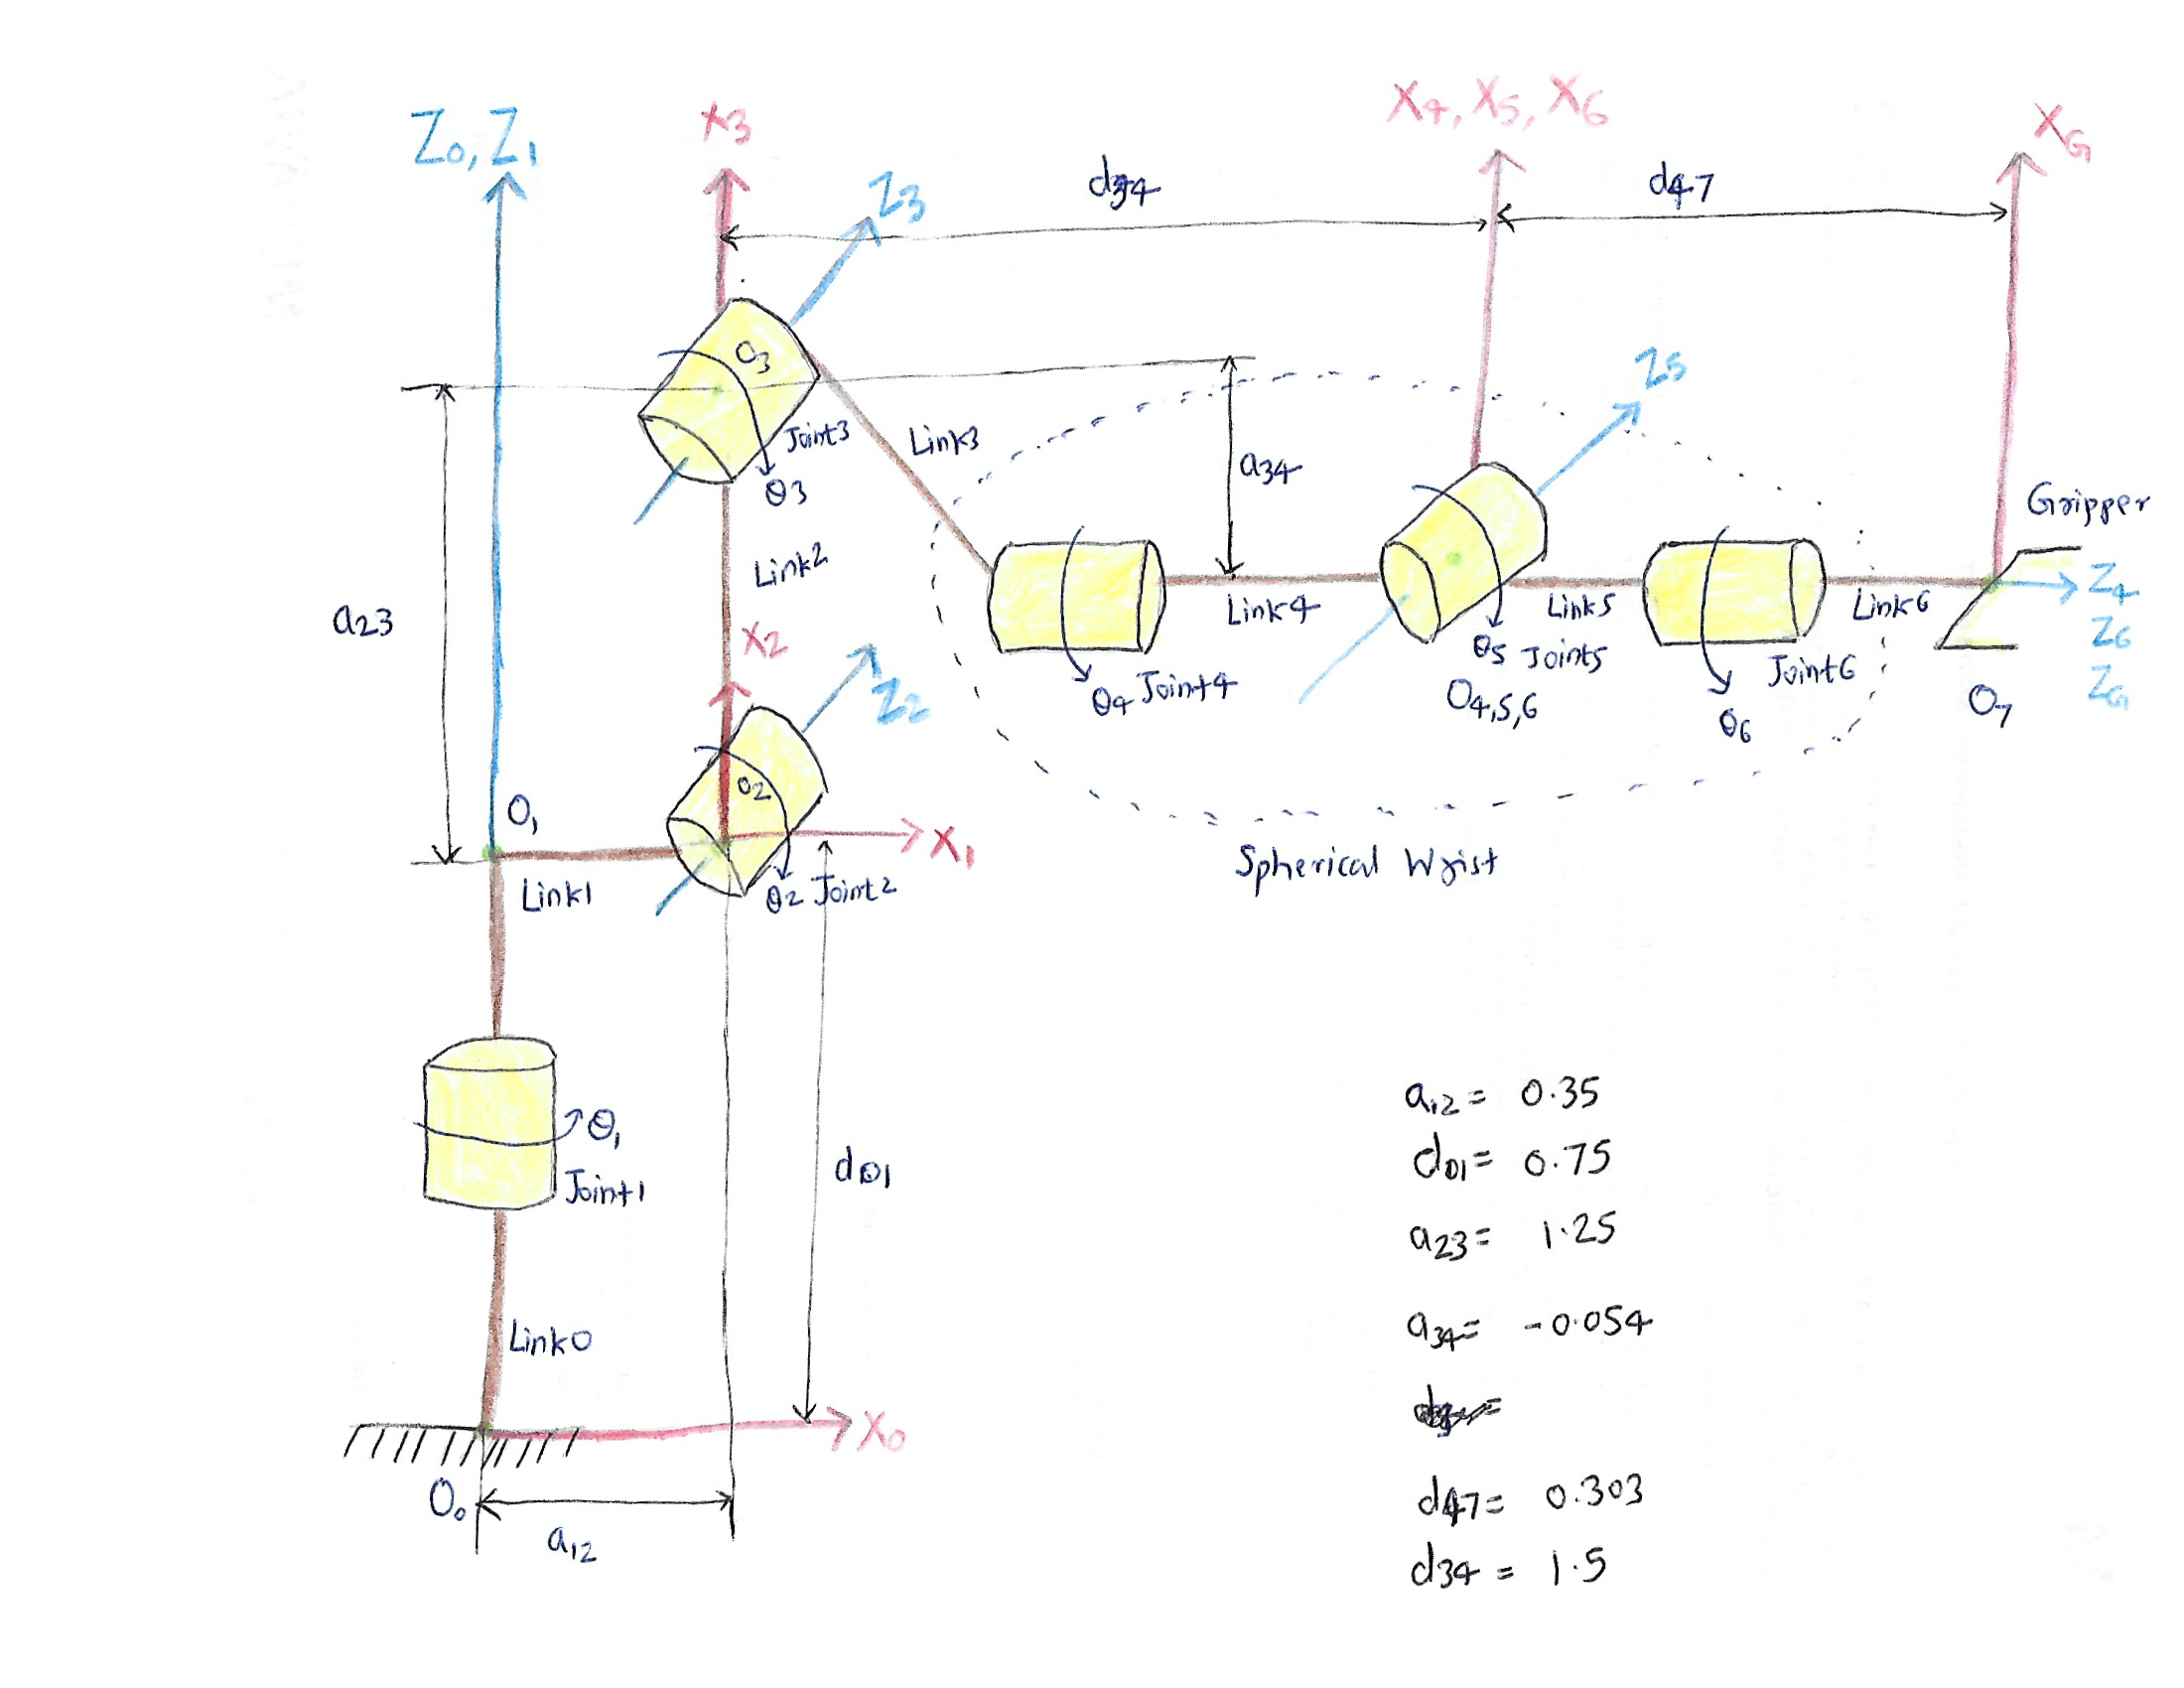 Z0, Z1
X3
Z3
d34
X4, X5, X6
d47
XG
O3
Joint3
θ3
Link3
a34
Z5
Gripper
Link2
a23
X2
Z2
Link4
θ4 Joint4
Link5
θ5 Joint5
O4,5,6
Joint6
θ6
Link6
Z4
Z6
ZG
O7
O1
O2
X1
Link1
θ2 Joint2
Spherical Wrist
θ1
Joint1
d01
Link0
X0
O0
a12
a12= 0.35
d01= 0.75
a23= 1.25
a34= -0.054
d47= 0.303
d34= 1.5